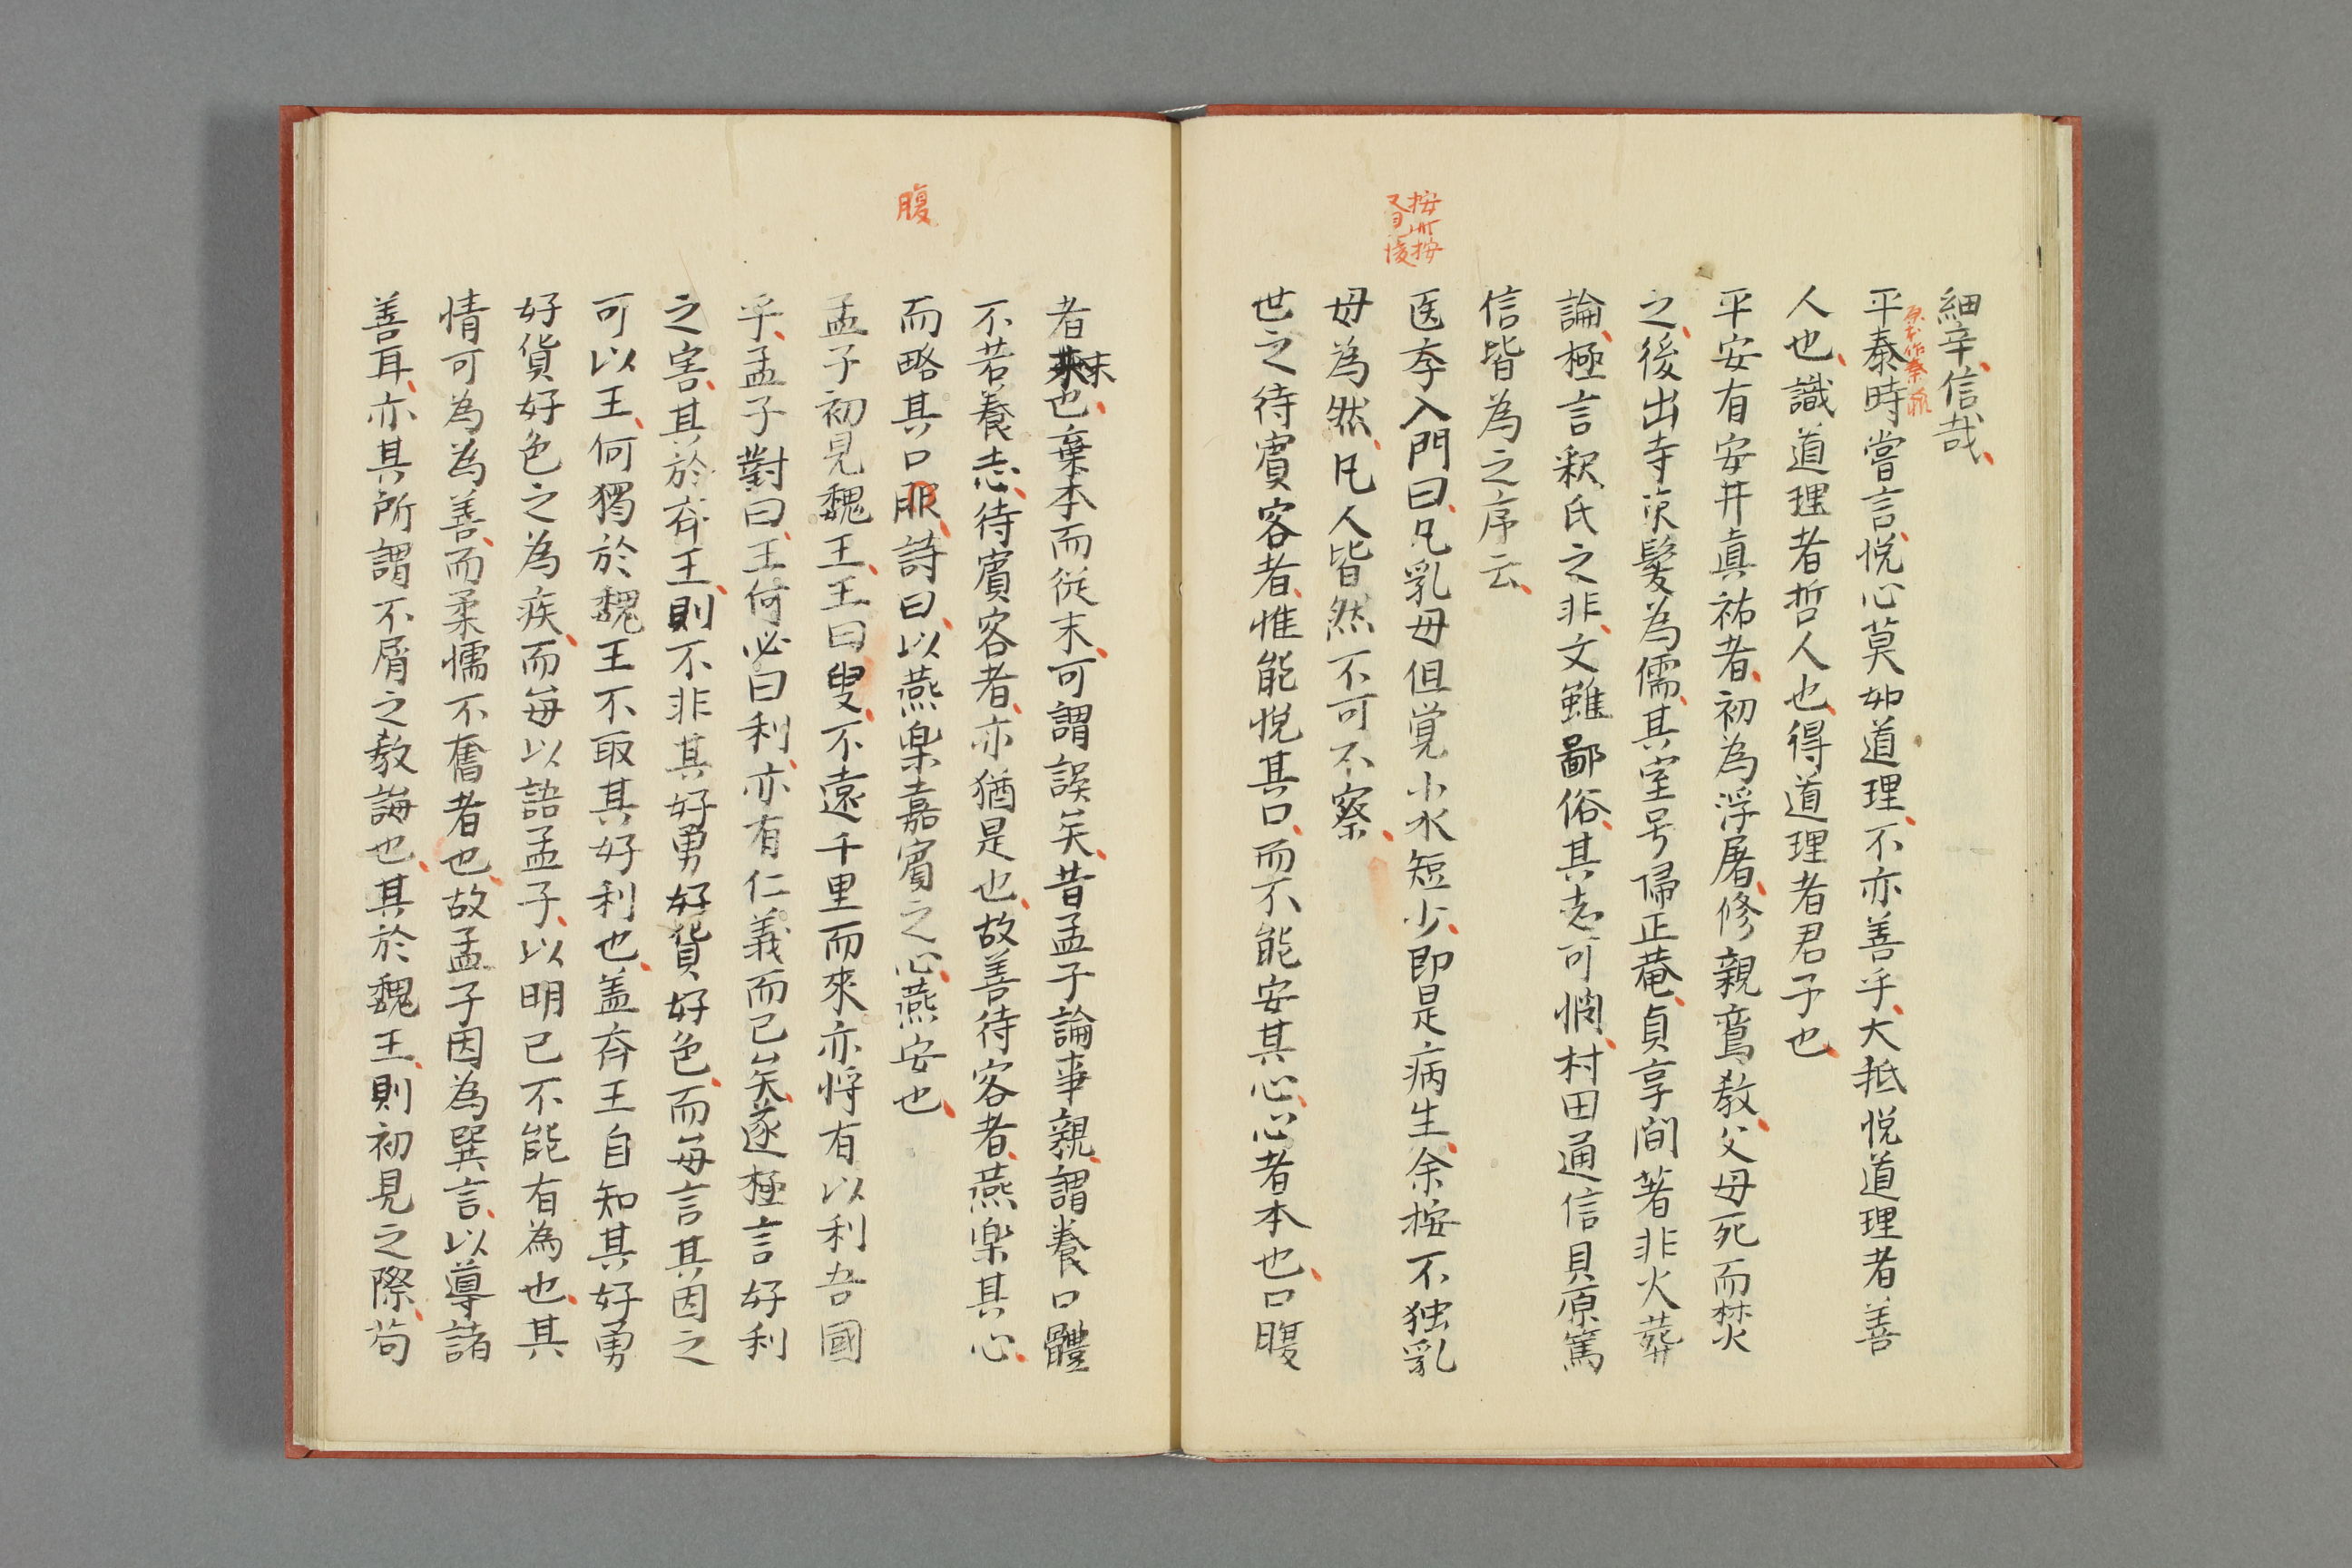 細辛、信哉、
平泰時嘗言、悦心莫如道理、不亦善乎、大抵悦道理者善
原本作秦
人也、識道理者哲人也、得道理者君子也、
平安有安井真祐者、初為浮屠、修親鸞教、父母死而焚
之、後出寺束髪為儒、其室号帰正菴、貞享間著非火葬
論、極言釈氏之非、文雖鄙俗、其志可憫、村田通信貝原篤
信皆為之序云、
按
按
医李入門曰、凡乳母但覚小水短少、即是病生、余按不独乳
母為然、凡人皆然、不可不察、
世之待賓客者、惟能悦其口、而不能安其心、心者本也、口腹
者末也、棄本而従末、可謂誤矣、昔孟子論事親、謂養口體
不若養志、待賓客者、亦猶是也、故善待客者、燕楽其心、
腹
而略其口服、詩曰、以燕楽嘉賓之心、燕安也、
孟子初見魏王、王曰叟、不遠千里而來亦将有以利吾國
乎、孟子對曰、王何必曰利、亦有仁義而已矣、遂極言好利
之害、其於斉王、則不非其好勇好貨好色、而毎言其因之
可以王、何獨於魏王不取其好利也、盖斉王自知其好勇
好貨好色之為疾、而毎以語孟子、以明已不能有為也、其
情可為為善、而柔懦不奮者也、故孟子因為巽言、以導諸
善耳、亦其所謂不屑之教誨也、其於魏王、則初見之際、苟